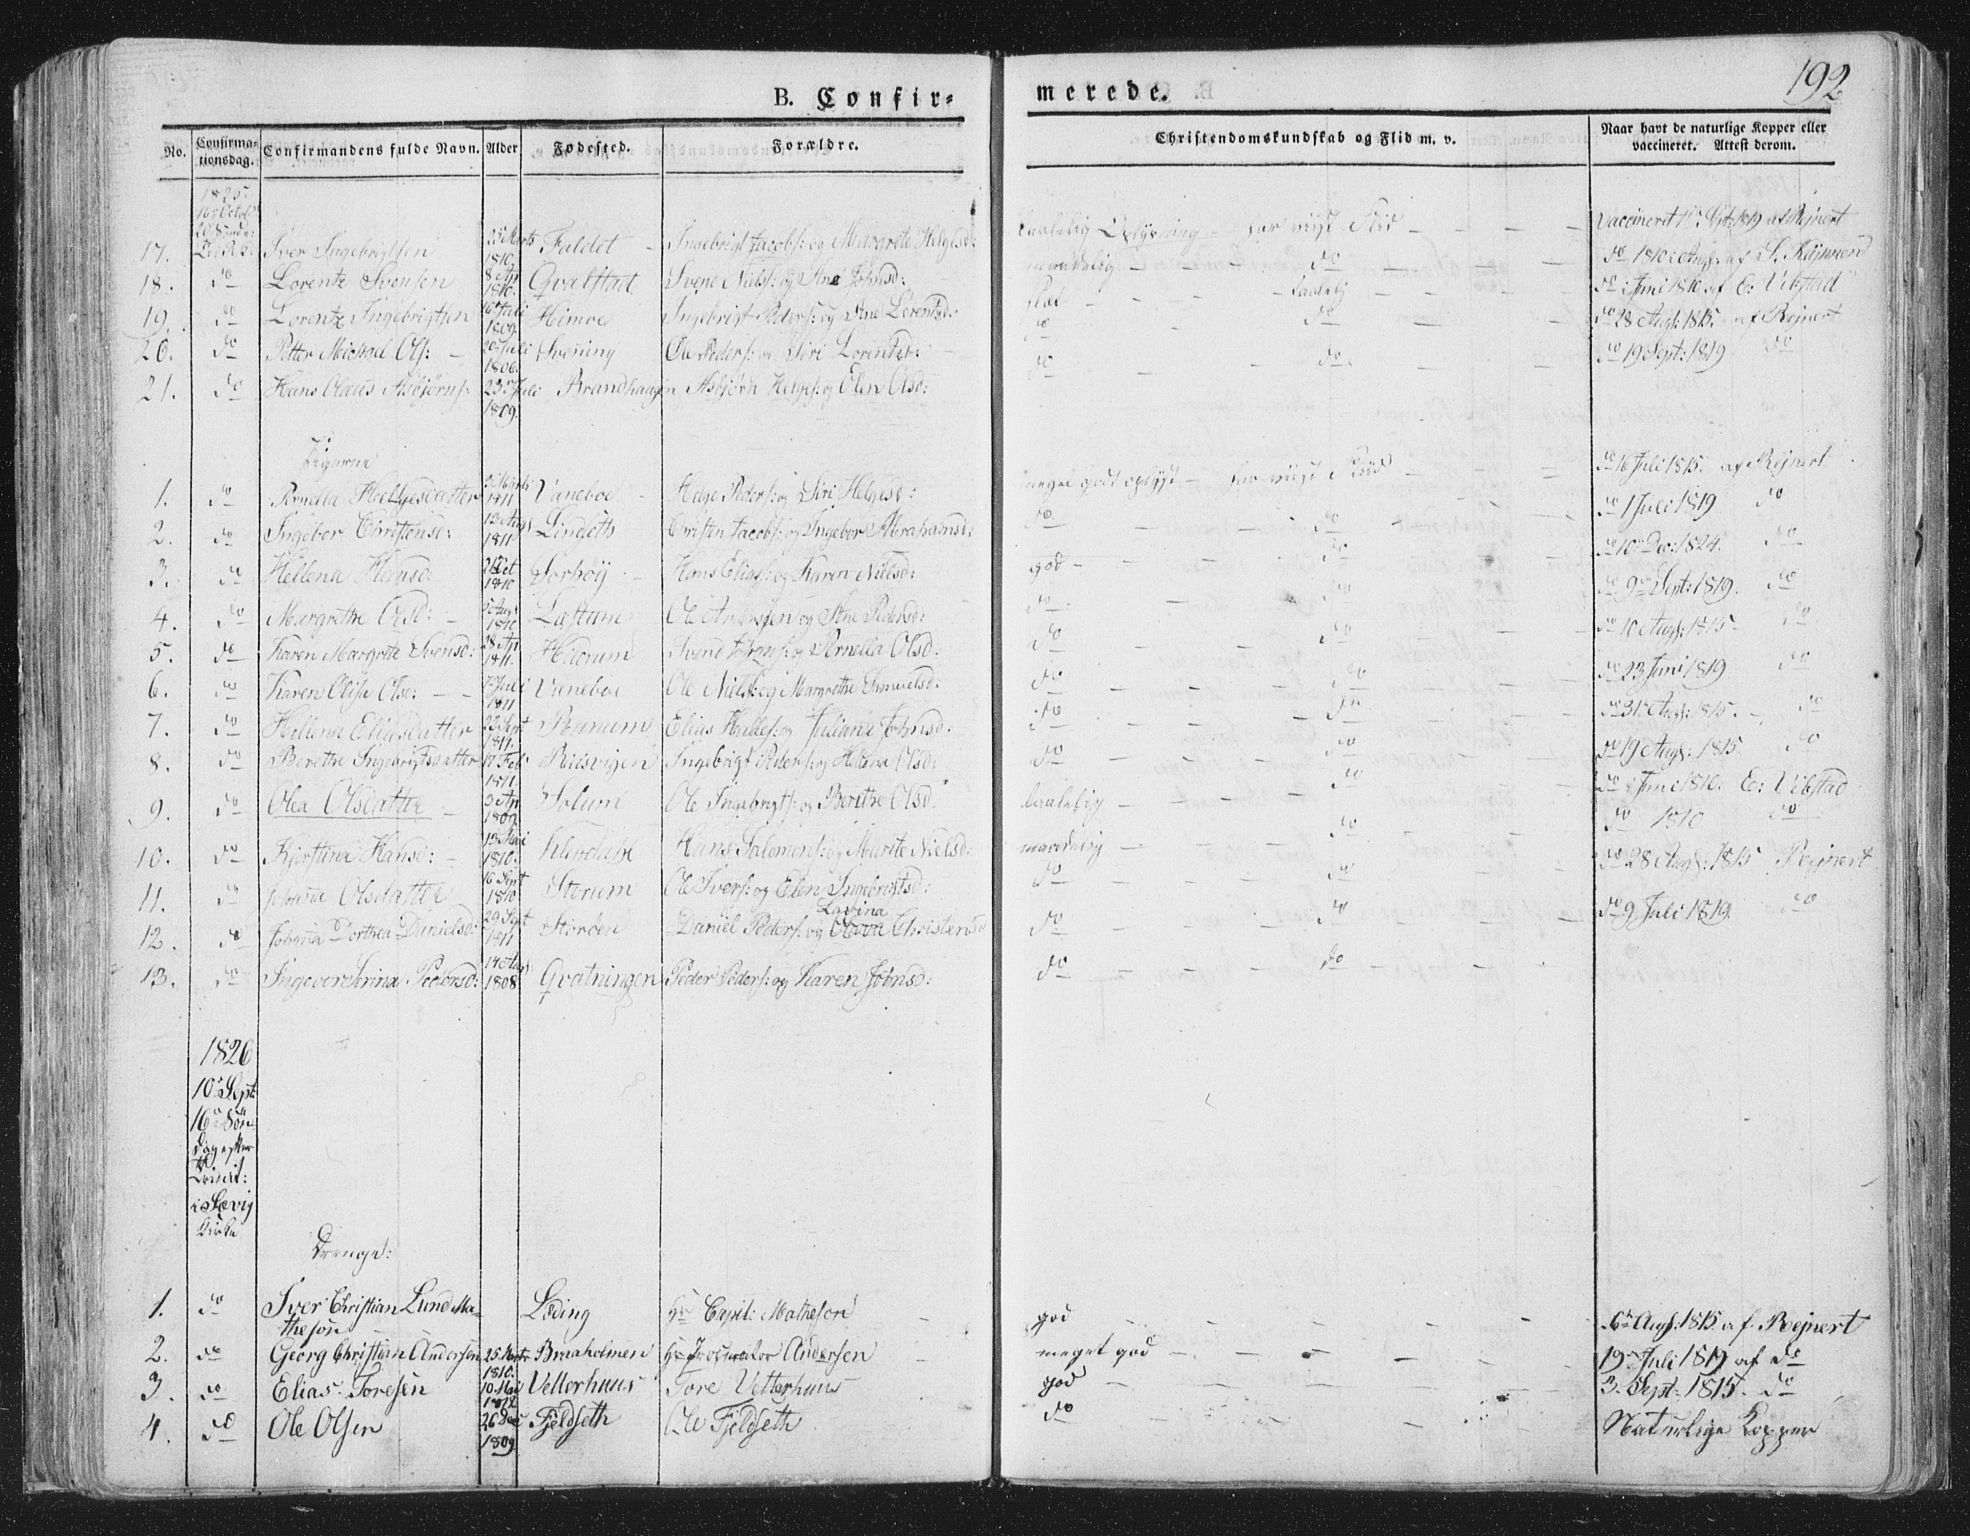 192
B. Confir-
merede.
No.
Confirma-
tionsdag.
Confirmandens fulde Navn.
Alder
Fødested.
Forældre.
Christendomskundskab og Flid m. v.
Naar havt de naturlige Kopper eller
vaccineret. Attest derom.
1825
16 Octob
17. Iver Ingebrigtsen 25 Marts 1810 Faldet – Ingebrigt Jacobs: og Marete Helgesd: taalelig Oplysning – har viist Flid – Vaccineret Sept: 1819 af Rejnert
18. do Lorentz Svensen 8 Ap 1810. Qvatstad Svend Niels: og Ane Johnsd: maadelig – do – do 1810 Aug: af S. Rejnert
19. do Lorentz Ingebrigtsen 16 Juli 1809. Himoe Ingebrigt Peders: og Ane Lorentzd: – do Juni 1810 af E: Vibstad
20. do Petter Michael Ols: – 20 Juli 1806 Svening Ole Peders: og Siri Lorentzd: do – do – do 28 Aug: 1815. af Rejnert
21. do Hans Olaus Asbjørns: 23 Juli 1809. Brandhaugen Asbjørn Helges: og Elen Olsd: do – do – do 19 Sept: 1819 do
Pigerne
1. do Pernella Helgesdatter Marts 1811 Vaneboe – Helge Peders: og Siri Helgesd: meget godt oplyst – har viist Flid – do 16 Juli 1815. af Rejnert
2. do Ingebor Christensd: 13 Aug 1811 Lindseth Christen Jacobs: og Ingebor Abrahamsd: do – do – do 1 Juli 1819 do
3. do Hellena Hansd: Oct 1810 Sorhøy – Hans Elias: og Karen Nielsd: god – do – do 10 Dec: 1824. do
4. do Margrethe Olsd: – Aug 1810 Læstum Ole Andersen og Ane Pedersd: do – do – do 9 Sept: 1819. do
5. do Karen Margrete Svensd: 28 Ap 1811. Hildrum Svend Johns: og Pernella Olsd: do – do – do 10 Aug: 1815 – do
6. do Karen Olisa Olsd: – 7 Juli 1811 Vaneboe Ole Niels: og Margrethe Samuelsd: do – do – do 23 Juni 1819 do
7. do Hellena Eliasdatter 22 Sept 1811. Ranum Elias Halles: og Juliana Johnsd: do – do – do 31 Aug: 1815. – do
8. do Berethe Ingebrigtsdatter 17 Feb 1811. Riisvigen Ingebrigt Peders: og Helena Olsd: do – do – do 19 Aug: 1815. do
9. do Olea Olsdatter – 3 Ap 1809. Solum Ole Ingebrigts: og Berethe Olsd: taalelig – do – do Juni 1810. E: Vibstad
10. do Kjerstina Hansd: – 13 Mai 1810. Hans Salomons: og Marete Nielsd: maadelig – do – do 1810 do
11. do Johanne Olsdatter 16 Sept 1810 Storum Ole Ivers: og Elen Ingebrigtsd: do – do – do 28 Aug: 1815 Rejnert
12. do Johanna Dorthea Danielsd: 29 Sept 1811 Storøen Daniel Peders: og Lavina Christensd do – do – do 9 Juli 1819. do
13. do Ingebor Serina Pedersd: 14 Aug 1808 Qvatningen Peder Peders: og Karen Johnsd: do – do –
1826
10 Sept
16 Søn-
dag efter
Trinit:
i Sævig
Kirke
Drenge:
1. do Iver Christian Lund Ma-
theson Løding Hr Capit: Matheson – god – 6 Aug: 1815 af Rejnert
2. do Georg Christian Andersen 25 Marts 1810. Braaholmen Hr Procurator Andersen – meget god – 19 Juli 1819 af do
3. do Elias Toresen 10 Mai Vetterhuus Tore Vetterhuus god – 3. Sept: 1815. do
4. do Ole Olsen 26 Dec 1809 Fjeldseth Ole Fjeldseth do – Naturlige Kopper